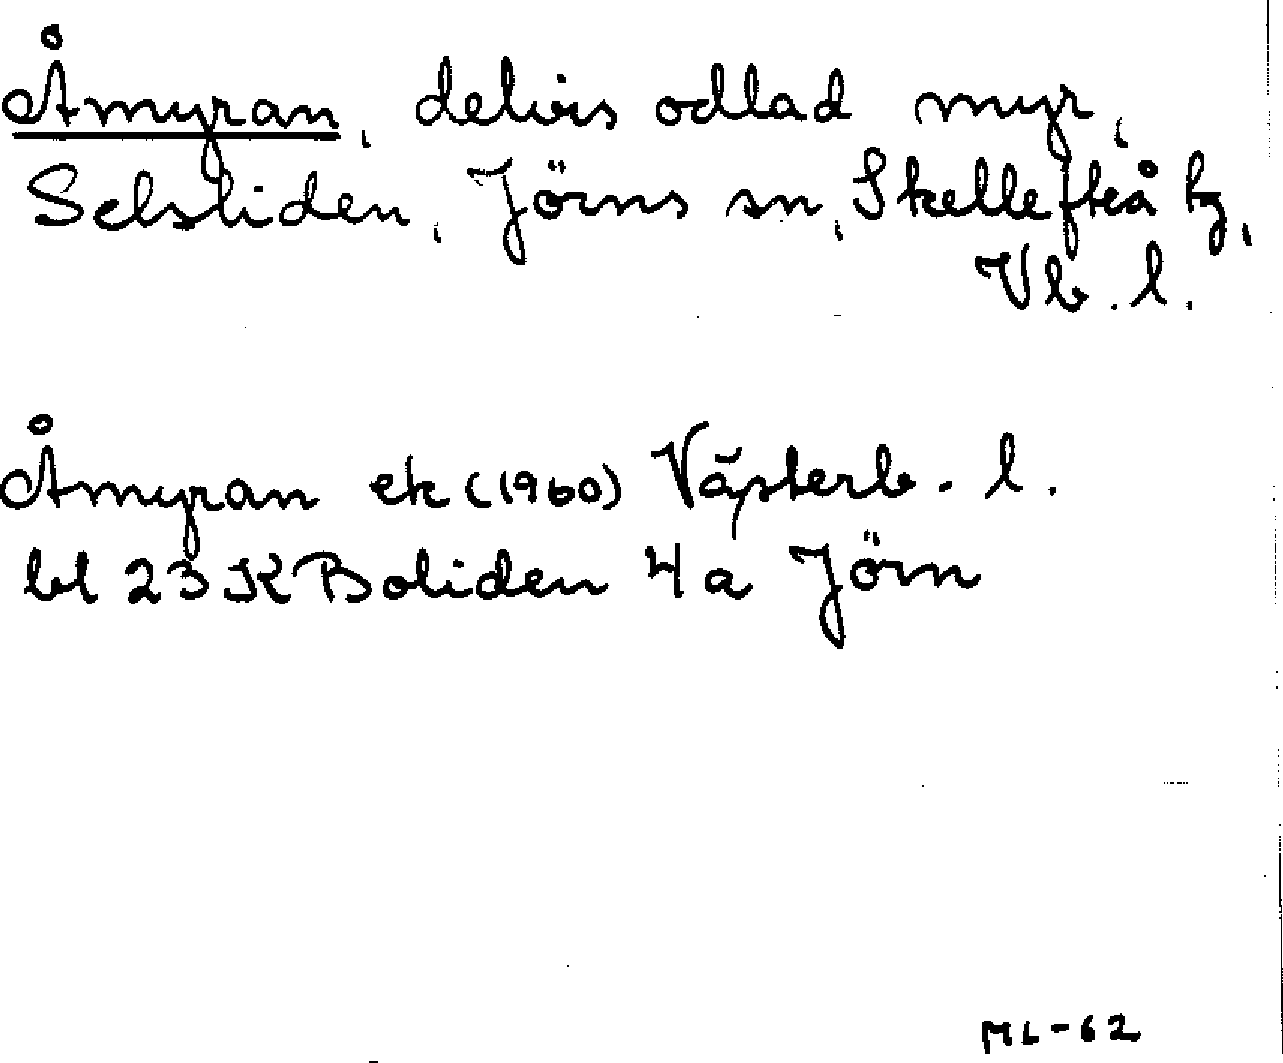 Åmyran, delvis odlad myr,
Selsliden, Jörns sn, Skellefteå tg,
Vb. l.
Åmyran ek (1960) Västerb. l.
bl 23 K Boliden 4 a Jörn
ML-62